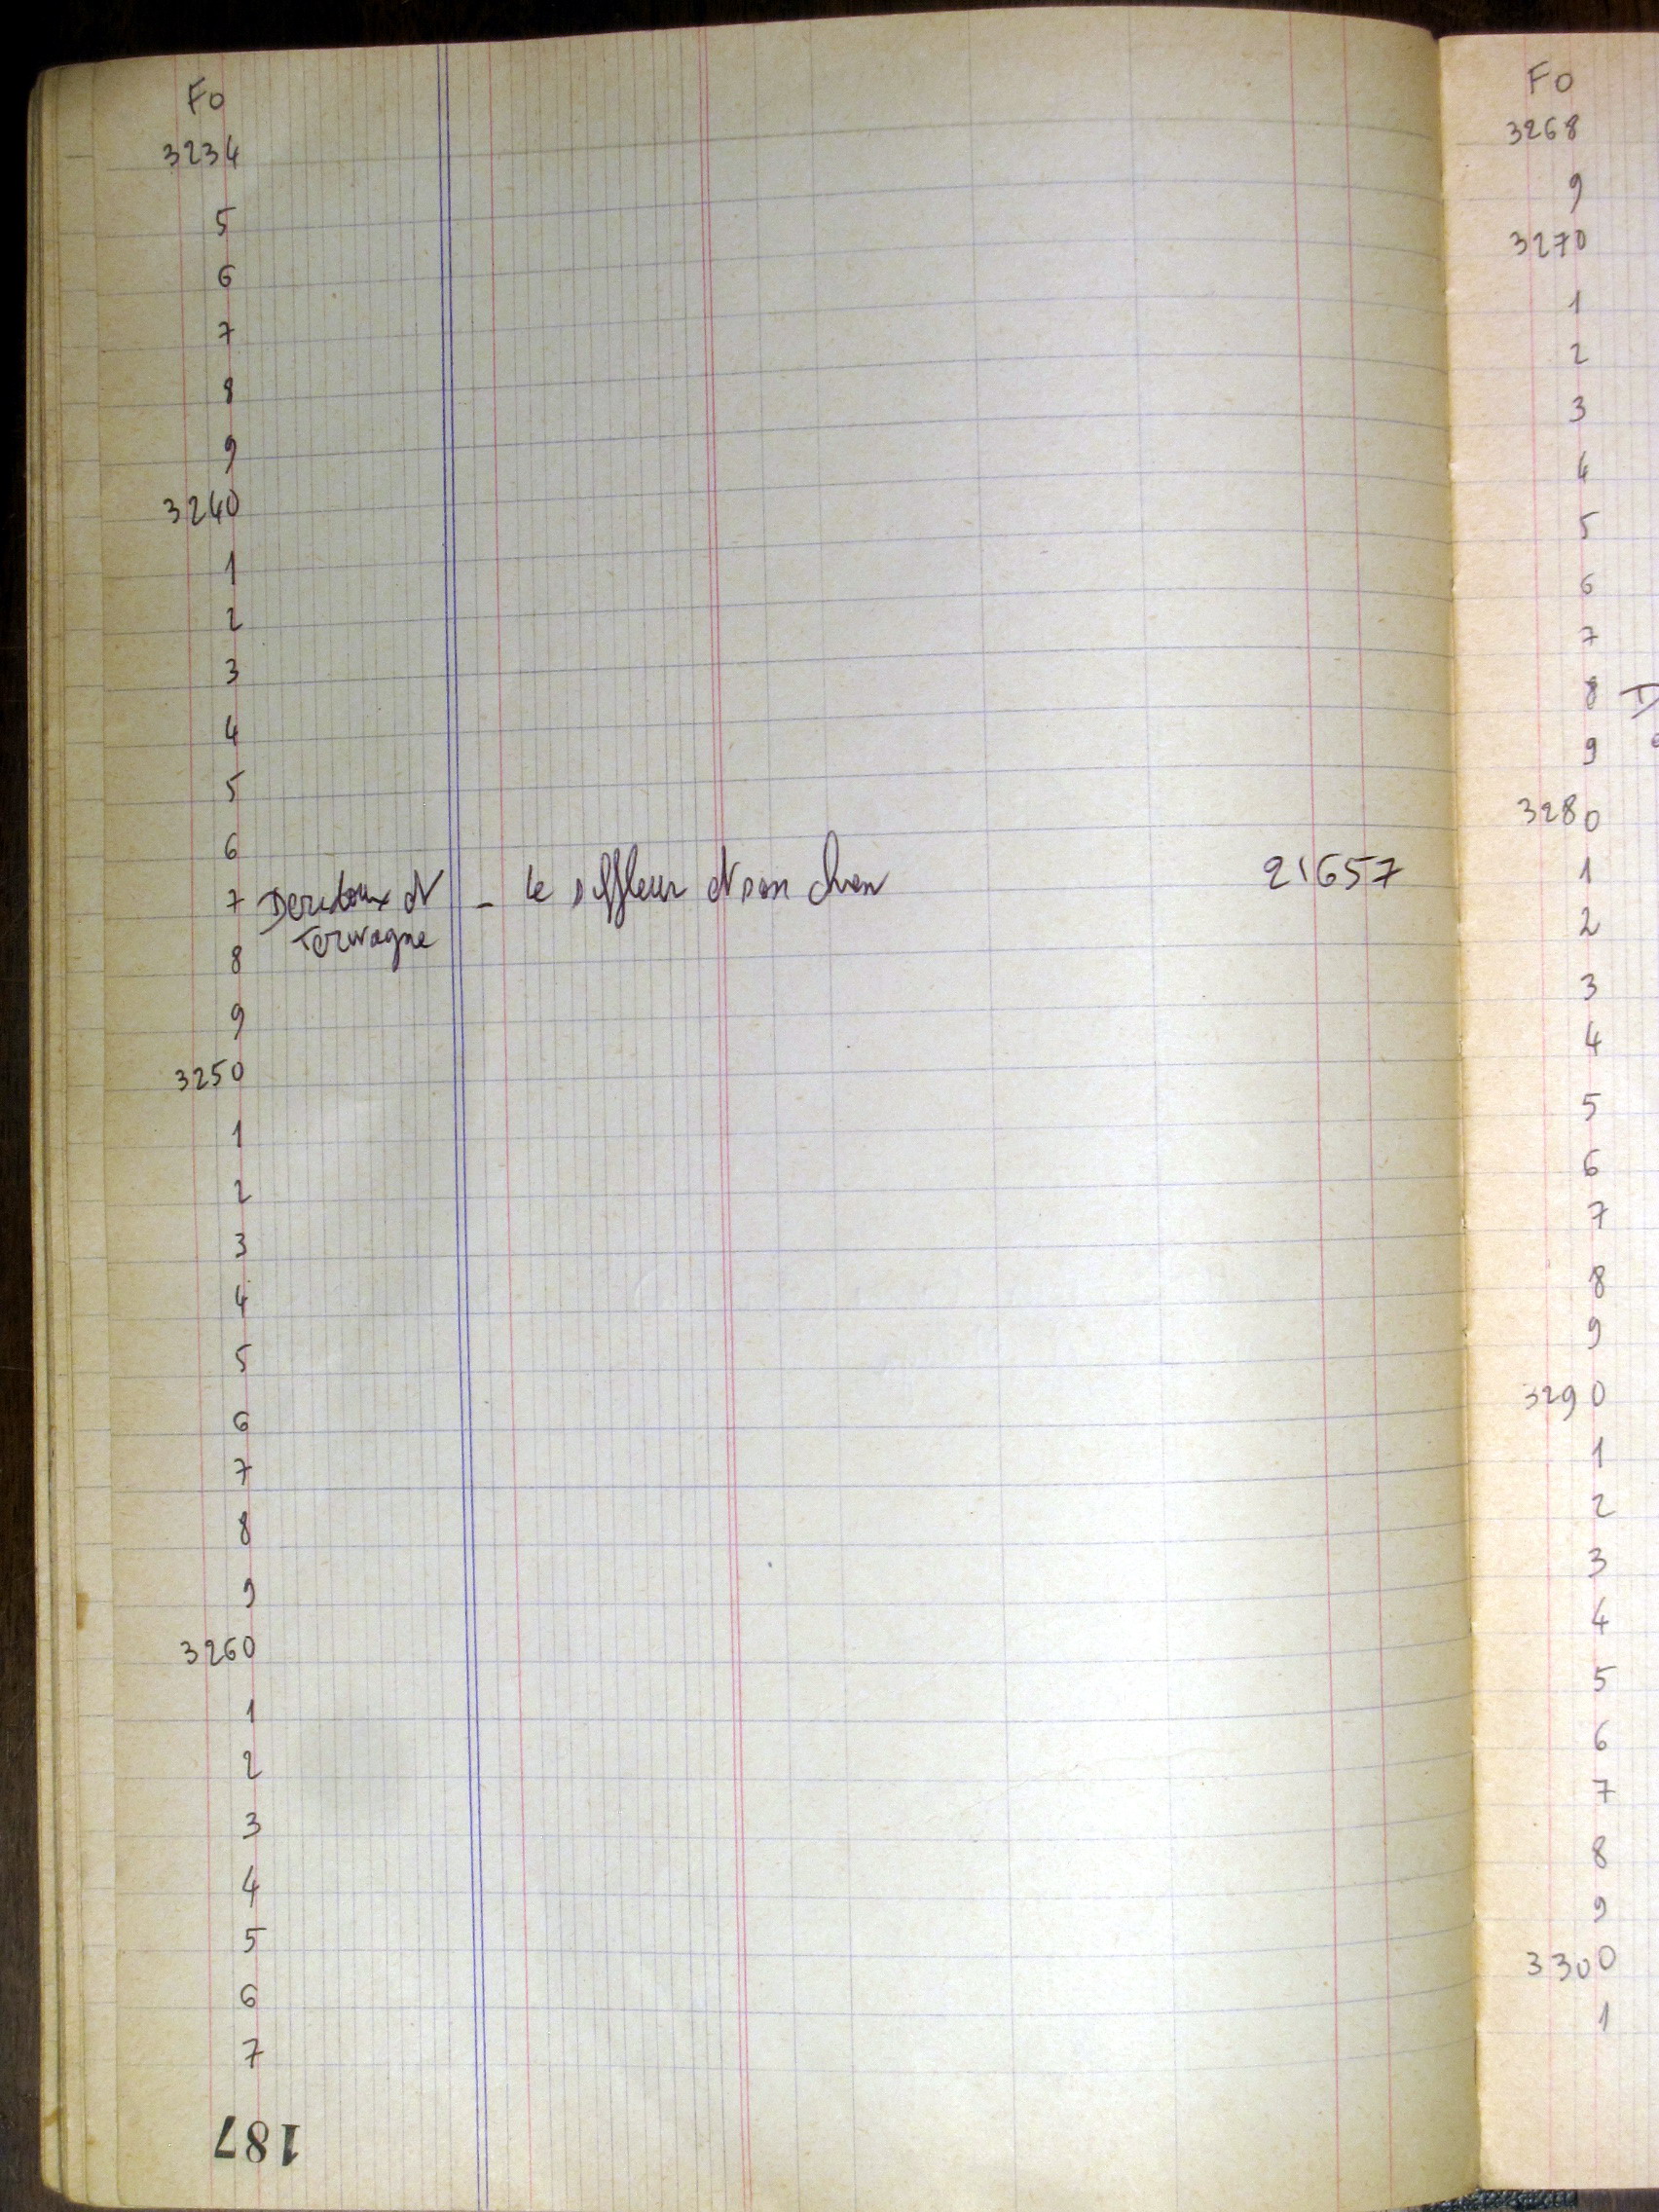 Fo
3234
5
6
7
8
9
3240
1
2
3
4
5
6
7 Deridoux et - Le siffleur et son chien 21657
Terwagne
8
9
3250
1
2
3
4
5
6
7
8
9
3260
1
2
3
4
5
6
7
187
Fo
3268
9
3270
1
2
3
4
5
6
7
8 D
9
3280
1
2
3
4
5
6
7
8
9
3290
1
2
3
4
5
6
7
8
9
3300
1